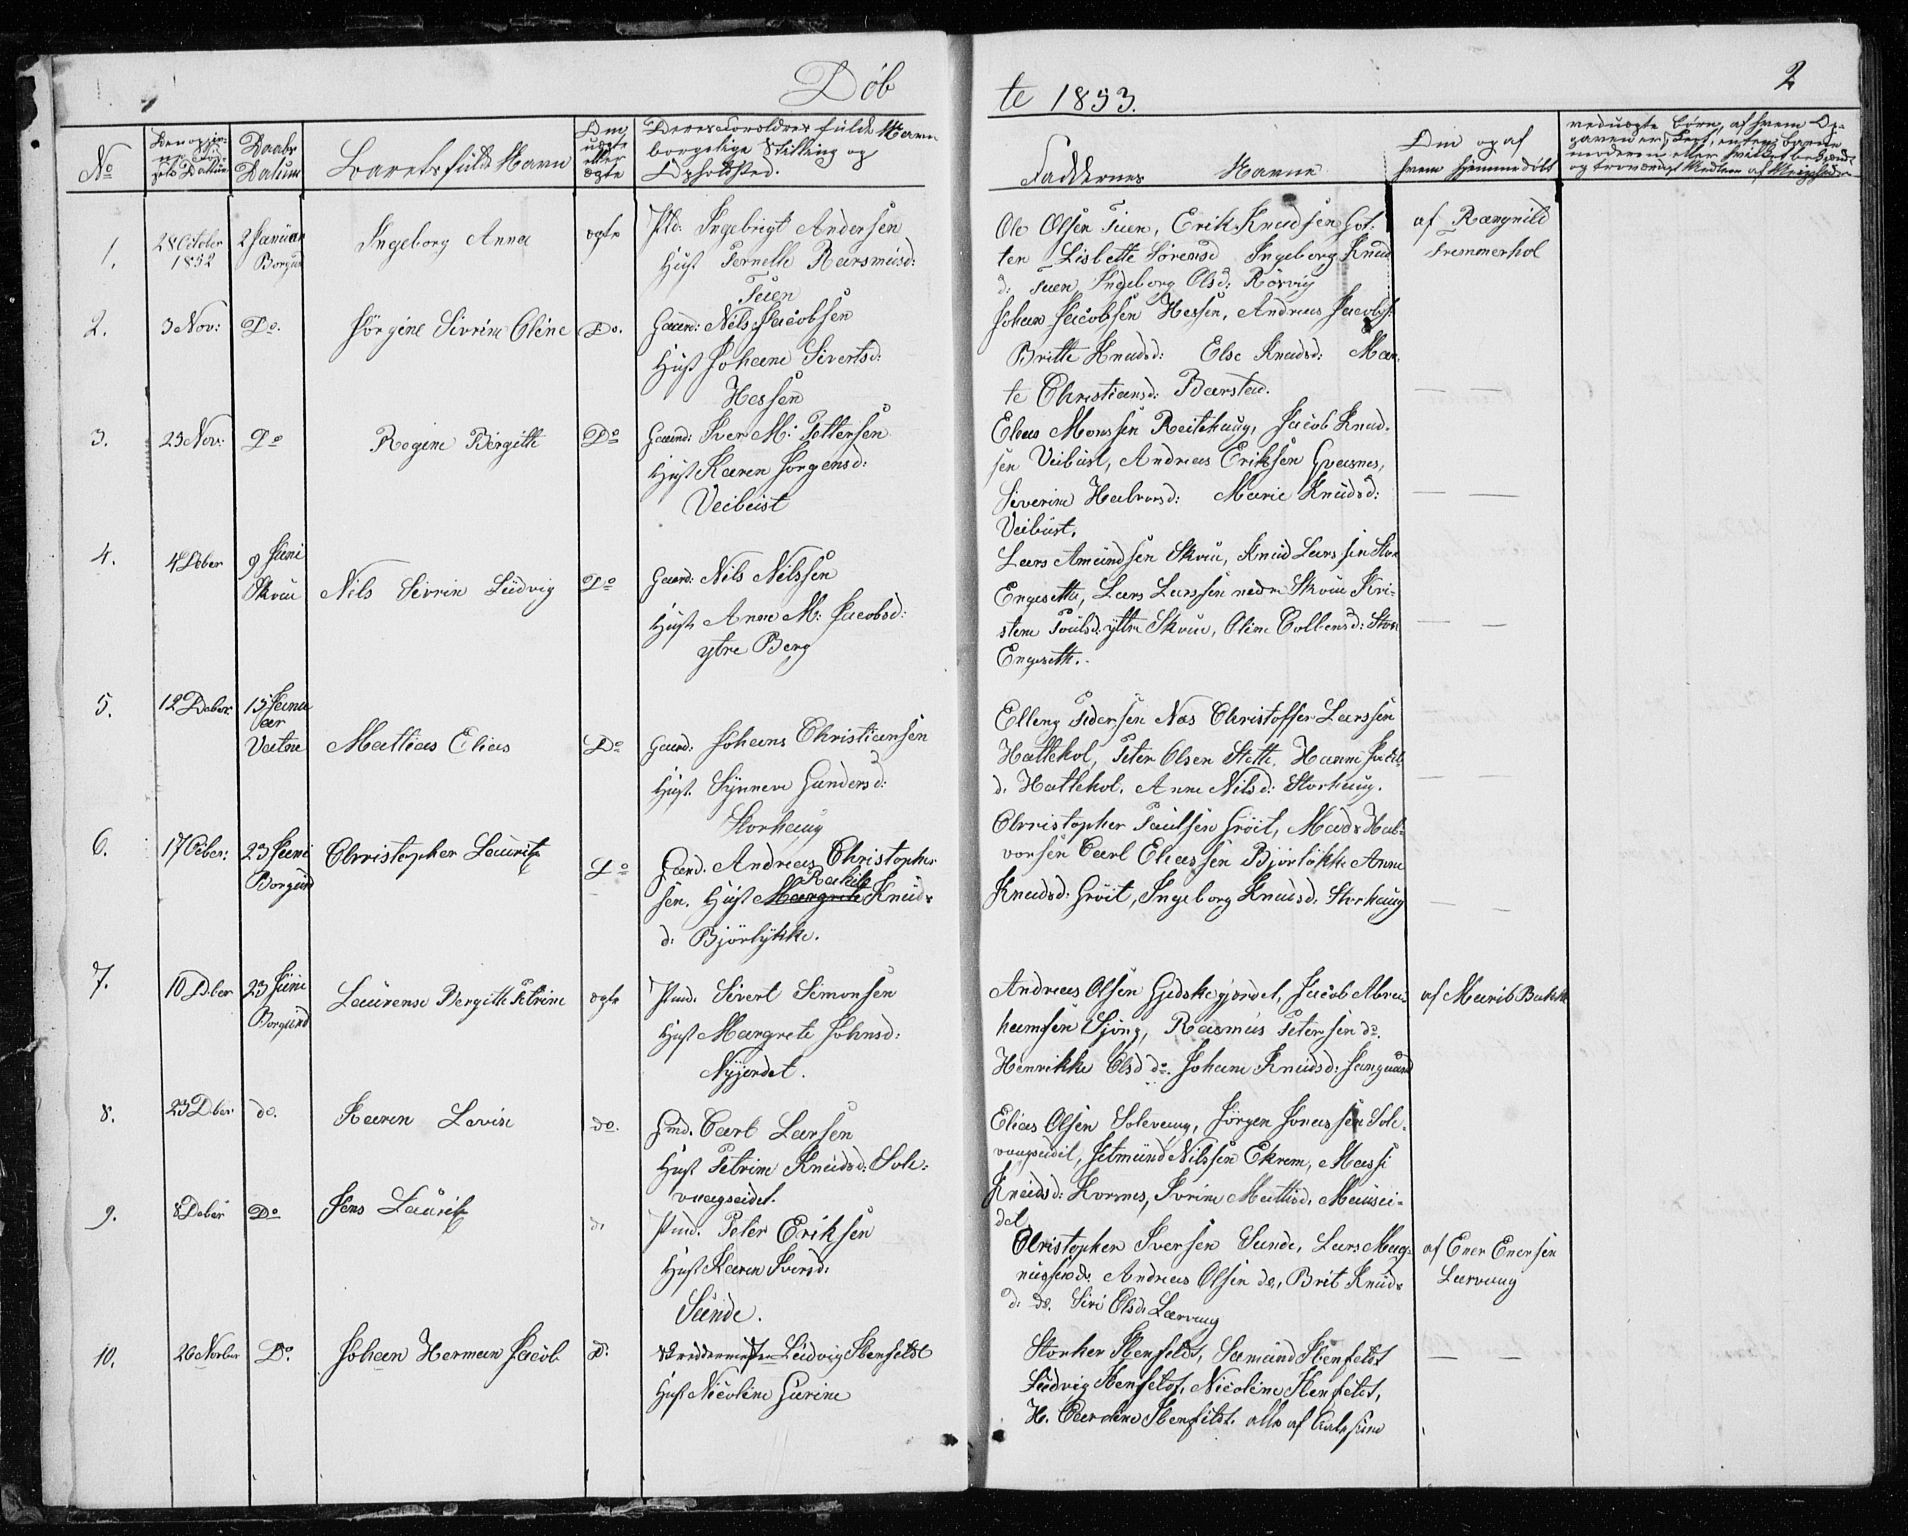 Døb
te 1853.
2
No
Daabs
Datum
Barnets fulde Navn
Om
uægte
eller
ægte
Deres Forældres fulde Navn
borgelige Stilling og
Opholdsted.
Faddernes Navne
Om og af
hvem hjemmedøbt
ved uægte børn, af hvem
1.
28 October
1852
2 Januar
Borgund
Ingeborg Anna
ægte
Pld. Ingebrigt Andersen
Hust Pernelle Rasmusd:
Tuen
Ole Olsen Tuen, Erik Knudsen Got-
ten Lisbette Sørensd Ingeborg Knud
d: Tuen, Ingeborg Olsd: Rørvig
af Rangnild
Fremmerhol
2.
3 Nov:
Do.
Jørgine Sivrine Oline
Do.
Gaard: Nils Jacobsen
Hust Johane Sivertsd:
Hessen
Johan Jacobsen Hessen, Andreas Jacobs:
Britte Knudsd: Else Knudsd: Mar-
te Christiansd: Barstad.
— —
3.
23 Nov:
Do
Regine Bergitte
Do
Gaard: Iver M: Pettersen
Hust Karen Jørgensd:
Veibust
Elias Monssen Reitehaug, Jacob Knud-
sen Veibust, Andreas Eriksen Gvasnes,
Siverine Halvorsd: Marie Knudsd:
Veibust.
— —
4.
4 Dcber
9 Janu
Skou
Nils Sivrin Ludvig
Do
Gaard: Nils Nilssen
Hust Anne M: Jacobsd:
ytre Berg
Lars Amundsen Skou, Knud Larssen Stor
Engesette, Lars Larssen nedre Skou Kri-
stene Poulsd: yttre Skou, Oline Colbensd: Stor
Engesette.
— —
5.
12 Dcber
15 Janu
ar
Vatne
Matias Elias
Do
Gaard: Johans Christiansen
Hust. Synneve Gundersd:
Storhaug
Elleng Pedersen Næs Christoffer Larssen
Hattehol, Peter Olsen Stette, Hanne Jacob
d. Hattehol, Anne Nilsd: Storhaug.
— —
6.
17 Octber:
23 Janu
Borgund
Christopher Lauritz
Do
Gaard. Andreas Christopher
Rakils
sen. Hust Margrete Knuds
d: Bjørlykke.
Christopher Paulsen Grøit, Mads Hal-
vorsen Carl Eliassen Bjørløkke Anne
Knudsd: Grøit, Ingeborg Knudsd. Storhaug
— —
7.
10 Dber
23 Janu
Borgund
Laurense Bergitte Petrine
ægte
Pmd. Sivert Simonsen
Hust Margrete Johnsd:
Nyjordet.
Andreas Olsen Gjedskegjerdet, Jacob Abra-
hamsen Sjong, Rasmus Petersen do.
Henrikke Olsd do. Johane Knudsd:
af Marit Bakke
8.
23 Dber
do.
Karen Lovise
do.
Gmd. Carl Larsen
Hust Petrine Knudsd: Sole-
vaagseidet.
Elias Olsen Solevaag, Jørgen Jonassen Sole-
vaagseidet, Jetmund Nilssen Ekrem, Massi
Knudsd: Korsnes, Ivrine Mathisd. Mausei-
det.
9.
8 Dcber
Do
Jens Lauritz
d.
Pmd. Peter Eriksen
Hust Karen Iversd:
Sunde.
Christopher Iversen Sunde, Lars Mag-
nussen do. Andreas Olsen do, Brit Knuds
d: do. Siri Olsd. Larvaag
af Ener Enersen
Larvaag
10.
26 Novber
Do.
Johan Herman Jacob
D.
Ludvig Stenfeldt
Hust Nicoline Gurine
Storker Stenfeldt, Samund Stenfeldt
Ludvig Stenfeldt, Nicoline Stenfeldt,
H. Caroline Stenfeldt. alle af Aalesund
— —